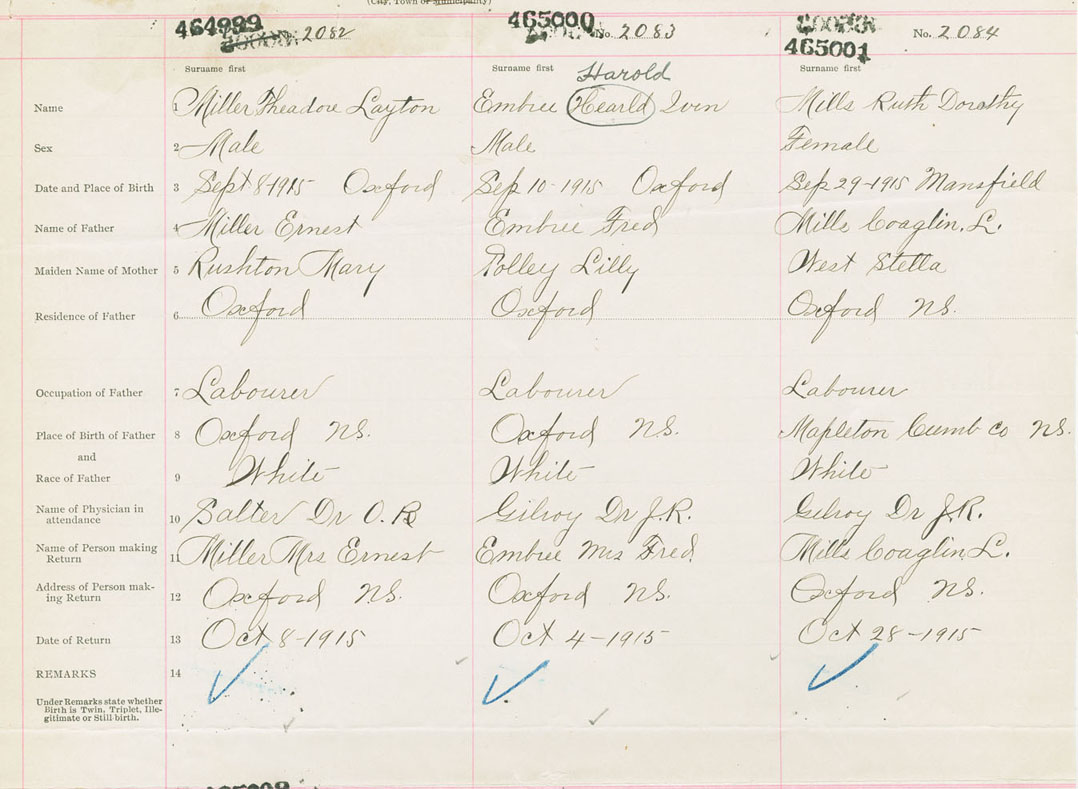 (City, Town or Municipality)
464999 2082 465000 No. 2083 465001 No. 2084
Surname first Surname first Harold Surname first
Name 1 Miller Theadore Layton Embree Hearld Ivin Mills Ruth Dorothy
Sex 2 Male Male Female
Date and Place of Birth 3 Sept 8-1915 Oxford Sep 10-1915 Oxford Sep 29-1915 Mansfield
Name of Father 4 Miller Ernest Embree Fred Mills Coaglin. L.
Maiden Name of Mother 5 Rushton Mary Polley Lilly West Stella
Residence of Father 6 Oxford Oxford Oxford NS.
Occupation of Father 7 Labourer Labourer Labourer
Place of Birth of Father 8 Oxford NS. Oxford NS. Mapleton Cumb Co NS.
and
Race of Father 9 White White White
Name of Physician in
attendance 10 Salter Dr O. R Gilroy Dr J.R. Gilroy Dr J.R.
Name of Person making
Return 11 Miller Mrs Ernest Embree Mrs Fred Mills Coaglin L.
Address of Person mak-
ing Return 12 Oxford NS. Oxford NS. Oxford NS.
Date of Return 13 Oct 8-1915 Oct 4-1915 Oct 28-1915
REMARKS 14
Under Remarks state whether
Birth is Twin, Triplet, Ille-
gitimate or Still-birth.